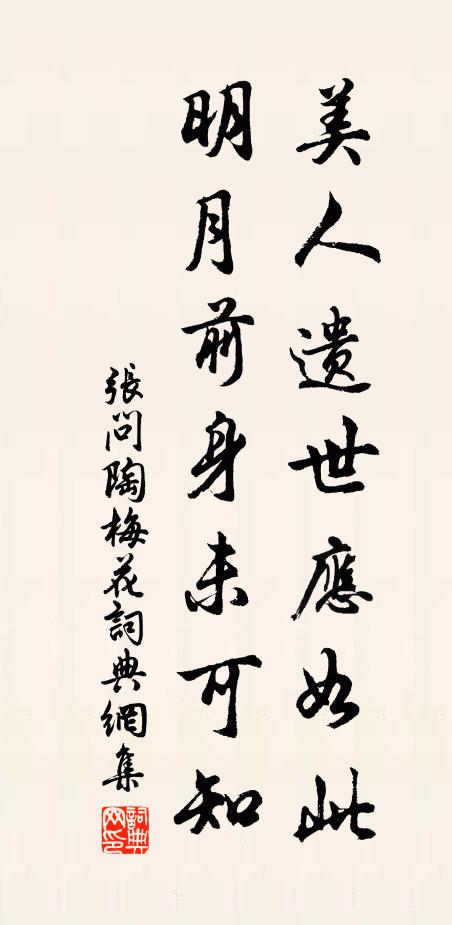 美人遺世應如此
明月前身未可知
張問陶梅花詞典網集
詞典网印